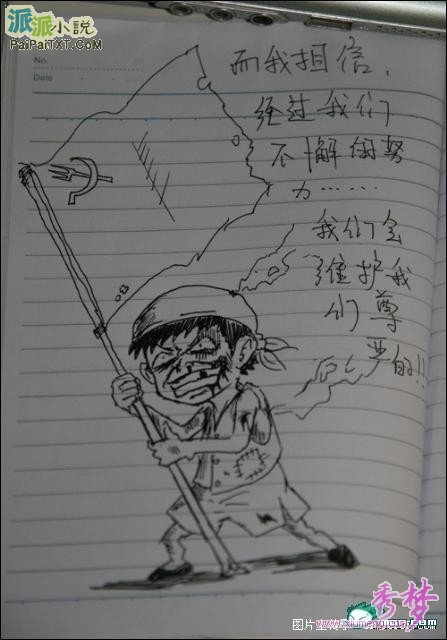 派派小说
PaiPaiTXT.com
No.
Date
而我相信，
经过我们
不懈的努
力……
我们会
维护我
们尊
严的!!
秀梦